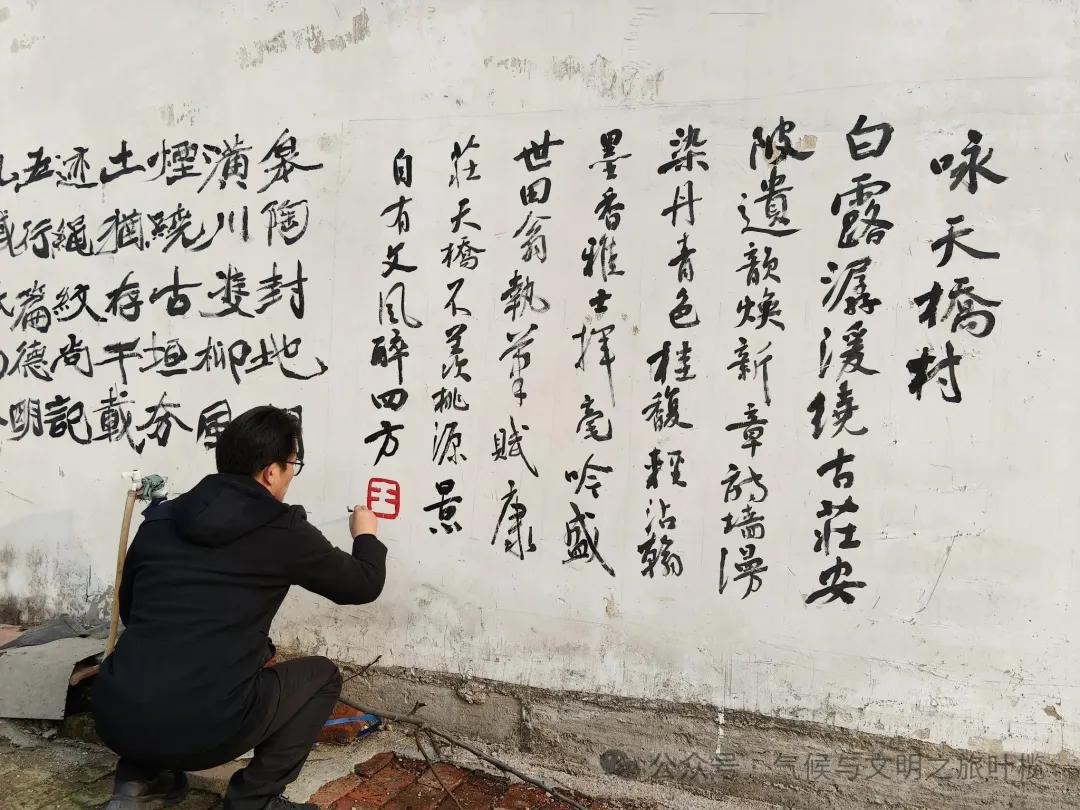 咏天橋村
白露潺湲繞古莊安
陂遺韻煥新章诗墙漫
染丹青色桂馥輕沾翰
墨香雅士揮毫吟盛
世田翁執筆賦康
莊天橋不羡桃源景
自有文风醉四方
王
皋陶封地
潢川雙柳風
煙繞古垣夯
土猶存千載
迹繩紋尚記
五行篇德明
公众号 · 气候与文明之旅叶榄